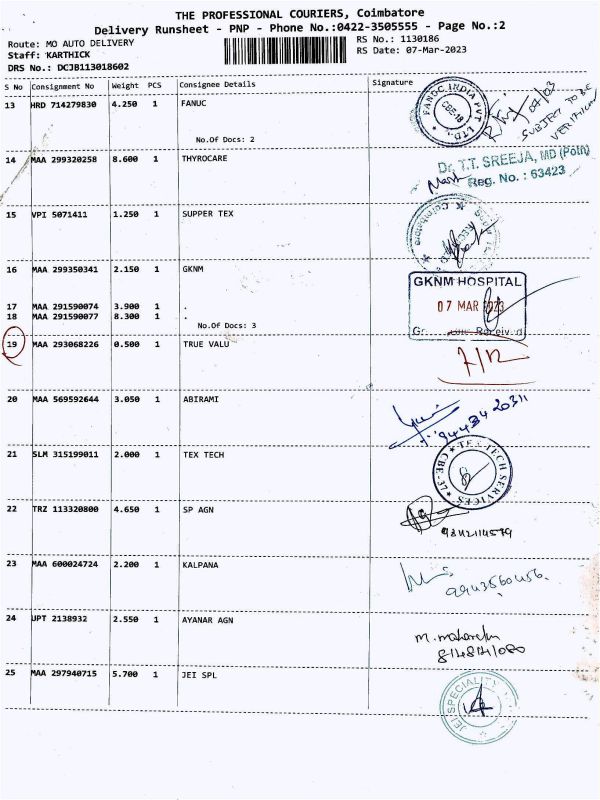 THE PROFESSIONAL COURIERS, Coimbatore
Delivery Runsheet - PNP - Phone No.:0422-3505555 - Page No.:2
Route: MO AUTO DELIVERY
Staff: KARTHICK
DRS No.: DCJB113018602
RS No.: 1130186
RS Date: 07-Mar-2023
S No Consignment No Weight PCS Consignee Details Signature
13 HRD 714279830 4.250 1 FANUC
No.Of Docs: 2
FANUC INDIA PVT. LTD.
CBE-18
07/03
SUBJECT TO BE
14 MAA 299320258 8.600 1 THYROCARE
Dr. T.T. SREEJA, MD (Path)
Reg. No. : 63423
15 VPI 5071411 1.250 1 SUPPER TEX
Coimbatore
16 MAA 299350341 2.150 1 GKNM
17 MAA 291590074 3.900 1 .
18 MAA 291590077 8.300 1 .
No.Of Docs: 3
GKNM HOSPITAL
07 MAR 2023
Received
19 MAA 293068226 0.500 1 TRUE VALU
20 MAA 569592644 3.050 1 ABIRAMI
21 SLM 315199011 2.000 1 TEX TECH
TEX TECH SERVICES
22 TRZ 113320800 4.650 1 SP AGN
23 MAA 600024724 2.200 1 KALPANA
24 JPT 2138932 2.550 1 AYANAR AGN
25 MAA 297940715 5.700 1 JEI SPL
JEI SPECIALITY